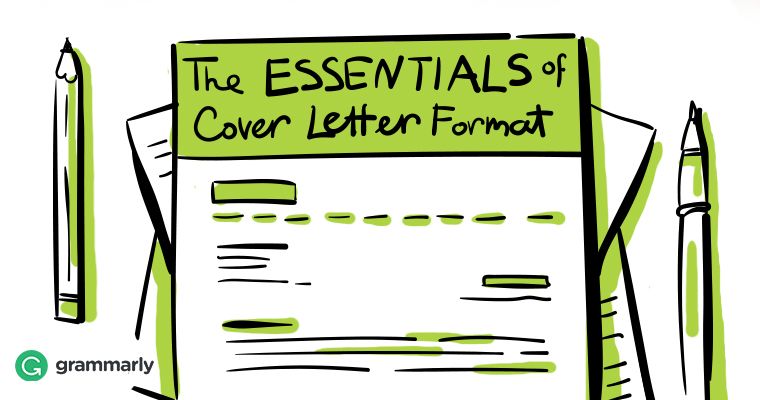 The ESSENTIALS of
Cover Letter Format
grammarly